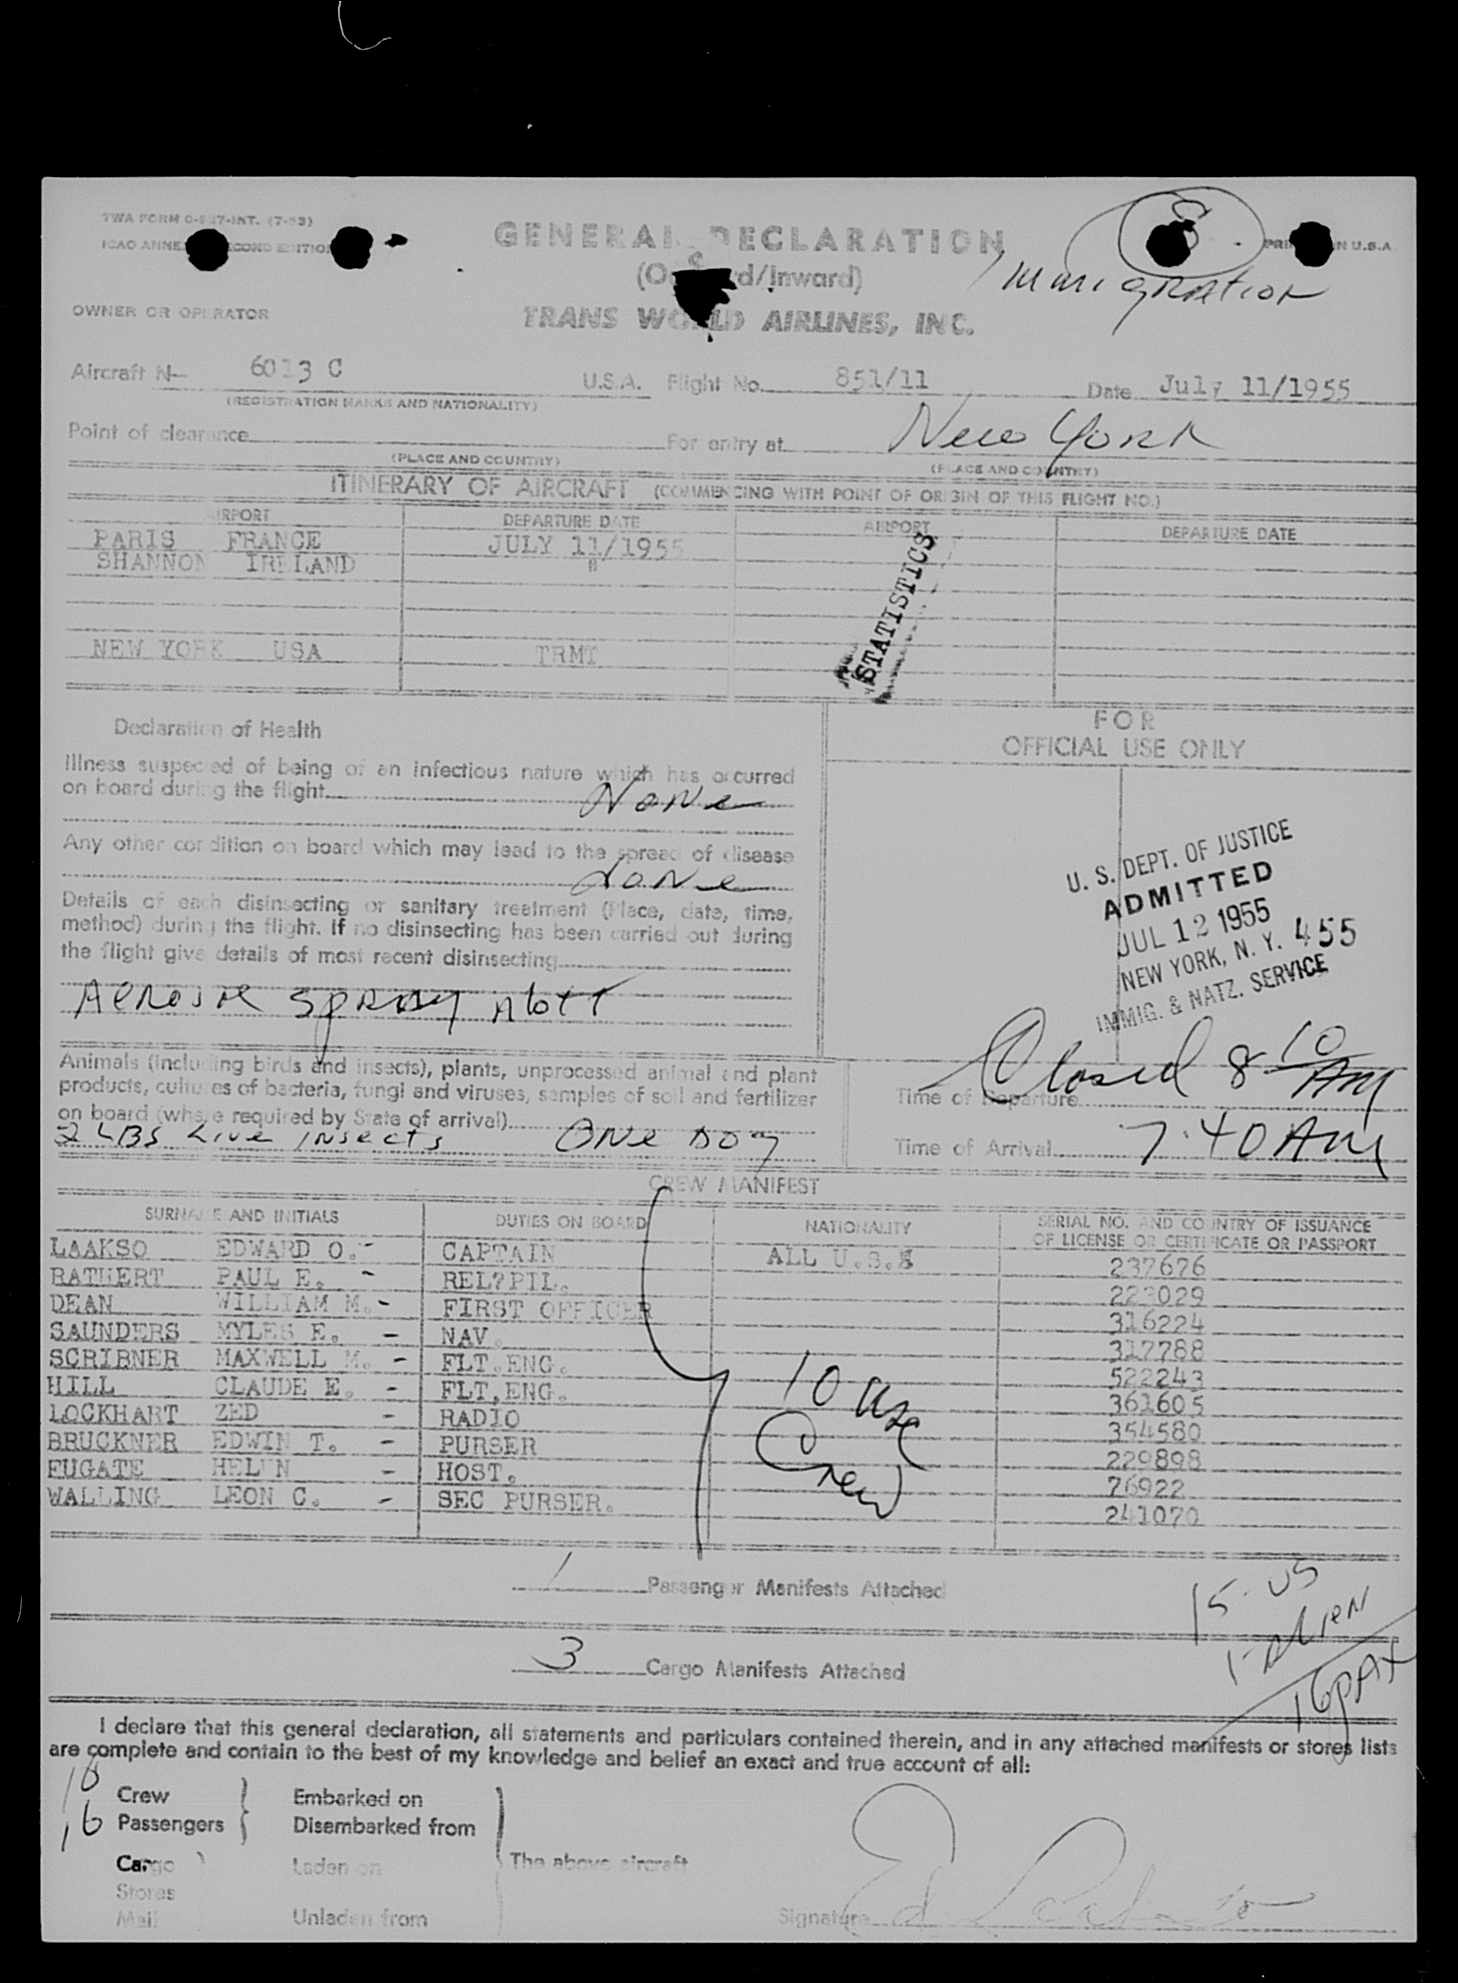 GENERAL DECLARATION
Immigration
OWNER OR OPERATOR
TRANS WORLD AIRLINES, INC.
Aircraft N— 6013 C U.S.A. Flight No. 851/11 Date July 11/1955
(REGISTRATION MARKS AND NATIONALITY)
Point of clearance For entry at New York
(PLACE AND COUNTRY) (PLACE AND COUNTRY)
ITINERARY OF AIRCRAFT (COMMENCING WITH POINT OF ORIGIN OF THIS FLIGHT NO.)
AIRPORT DEPARTURE DATE AIRPORT DEPARTURE DATE
PARIS FRANCE JULY 11/1955
SHANNON IRELAND "
STATISTICS
NEW YORK USA TRMT
Declaration of Health
FOR
OFFICIAL USE ONLY
Illness suspected of being of an infectious nature which has occurred
on board during the flight None
Any other condition on board which may lead to the spread of disease
None
Details of each disinsecting or sanitary treatment (Place, date, time,
method) during the flight. If no disinsecting has been carried out during
the flight give details of most recent disinsecting
Aerosol spray
U. S. DEPT. OF JUSTICE
ADMITTED
JUL 12 1955
NEW YORK, N. Y. 455
IMMIG. & NATZ. SERVICE
Animals (including birds and insects), plants, unprocessed animal and plant
products, cultures of bacteria, fungi and viruses, samples of soil and fertilizer
on board (where required by State of arrival)
2 LBS Live Insects One Dog
Closed 8 10 AM
Time of Departure
Time of Arrival 7:40 AM
CREW MANIFEST
SURNAME AND INITIALS DUTIES ON BOARD NATIONALITY SERIAL NO. AND COUNTRY OF ISSUANCE
OF LICENSE OR CERTIFICATE OR PASSPORT
LAAKSO EDWARD O. - CAPTAIN ALL U.S. 237676
RATHERT PAUL E. - REL?PIL.
DEAN WILLIAM M. - FIRST OFFICER 316224
SAUNDERS MYLES E. - NAV. 317788
SCRIBNER MAXWELL M. - FLT.ENG. 522243
HILL CLAUDE E. - FLT,ENG. 361605
LOCKHART ZED - RADIO 354580
BRUCKNER EDWIN T. - PURSER 229898
FUGATE HELEN - HOST. 76922
WALLING LEON C. - SEC PURSER. 241070
10 USC
Crew
1 Passenger Manifests Attached
15-US
1-Alien
16 PAX
3 Cargo Manifests Attached
I declare that this general declaration, all statements and particulars contained therein, and in any attached manifests or stores lists
are complete and contain to the best of my knowledge and belief an exact and true account of all:
10 Crew Embarked on
16 Passengers Disembarked from
Cargo Laden on The above aircraft
Stores
Mail Unladen from
Signature Ed Laakso